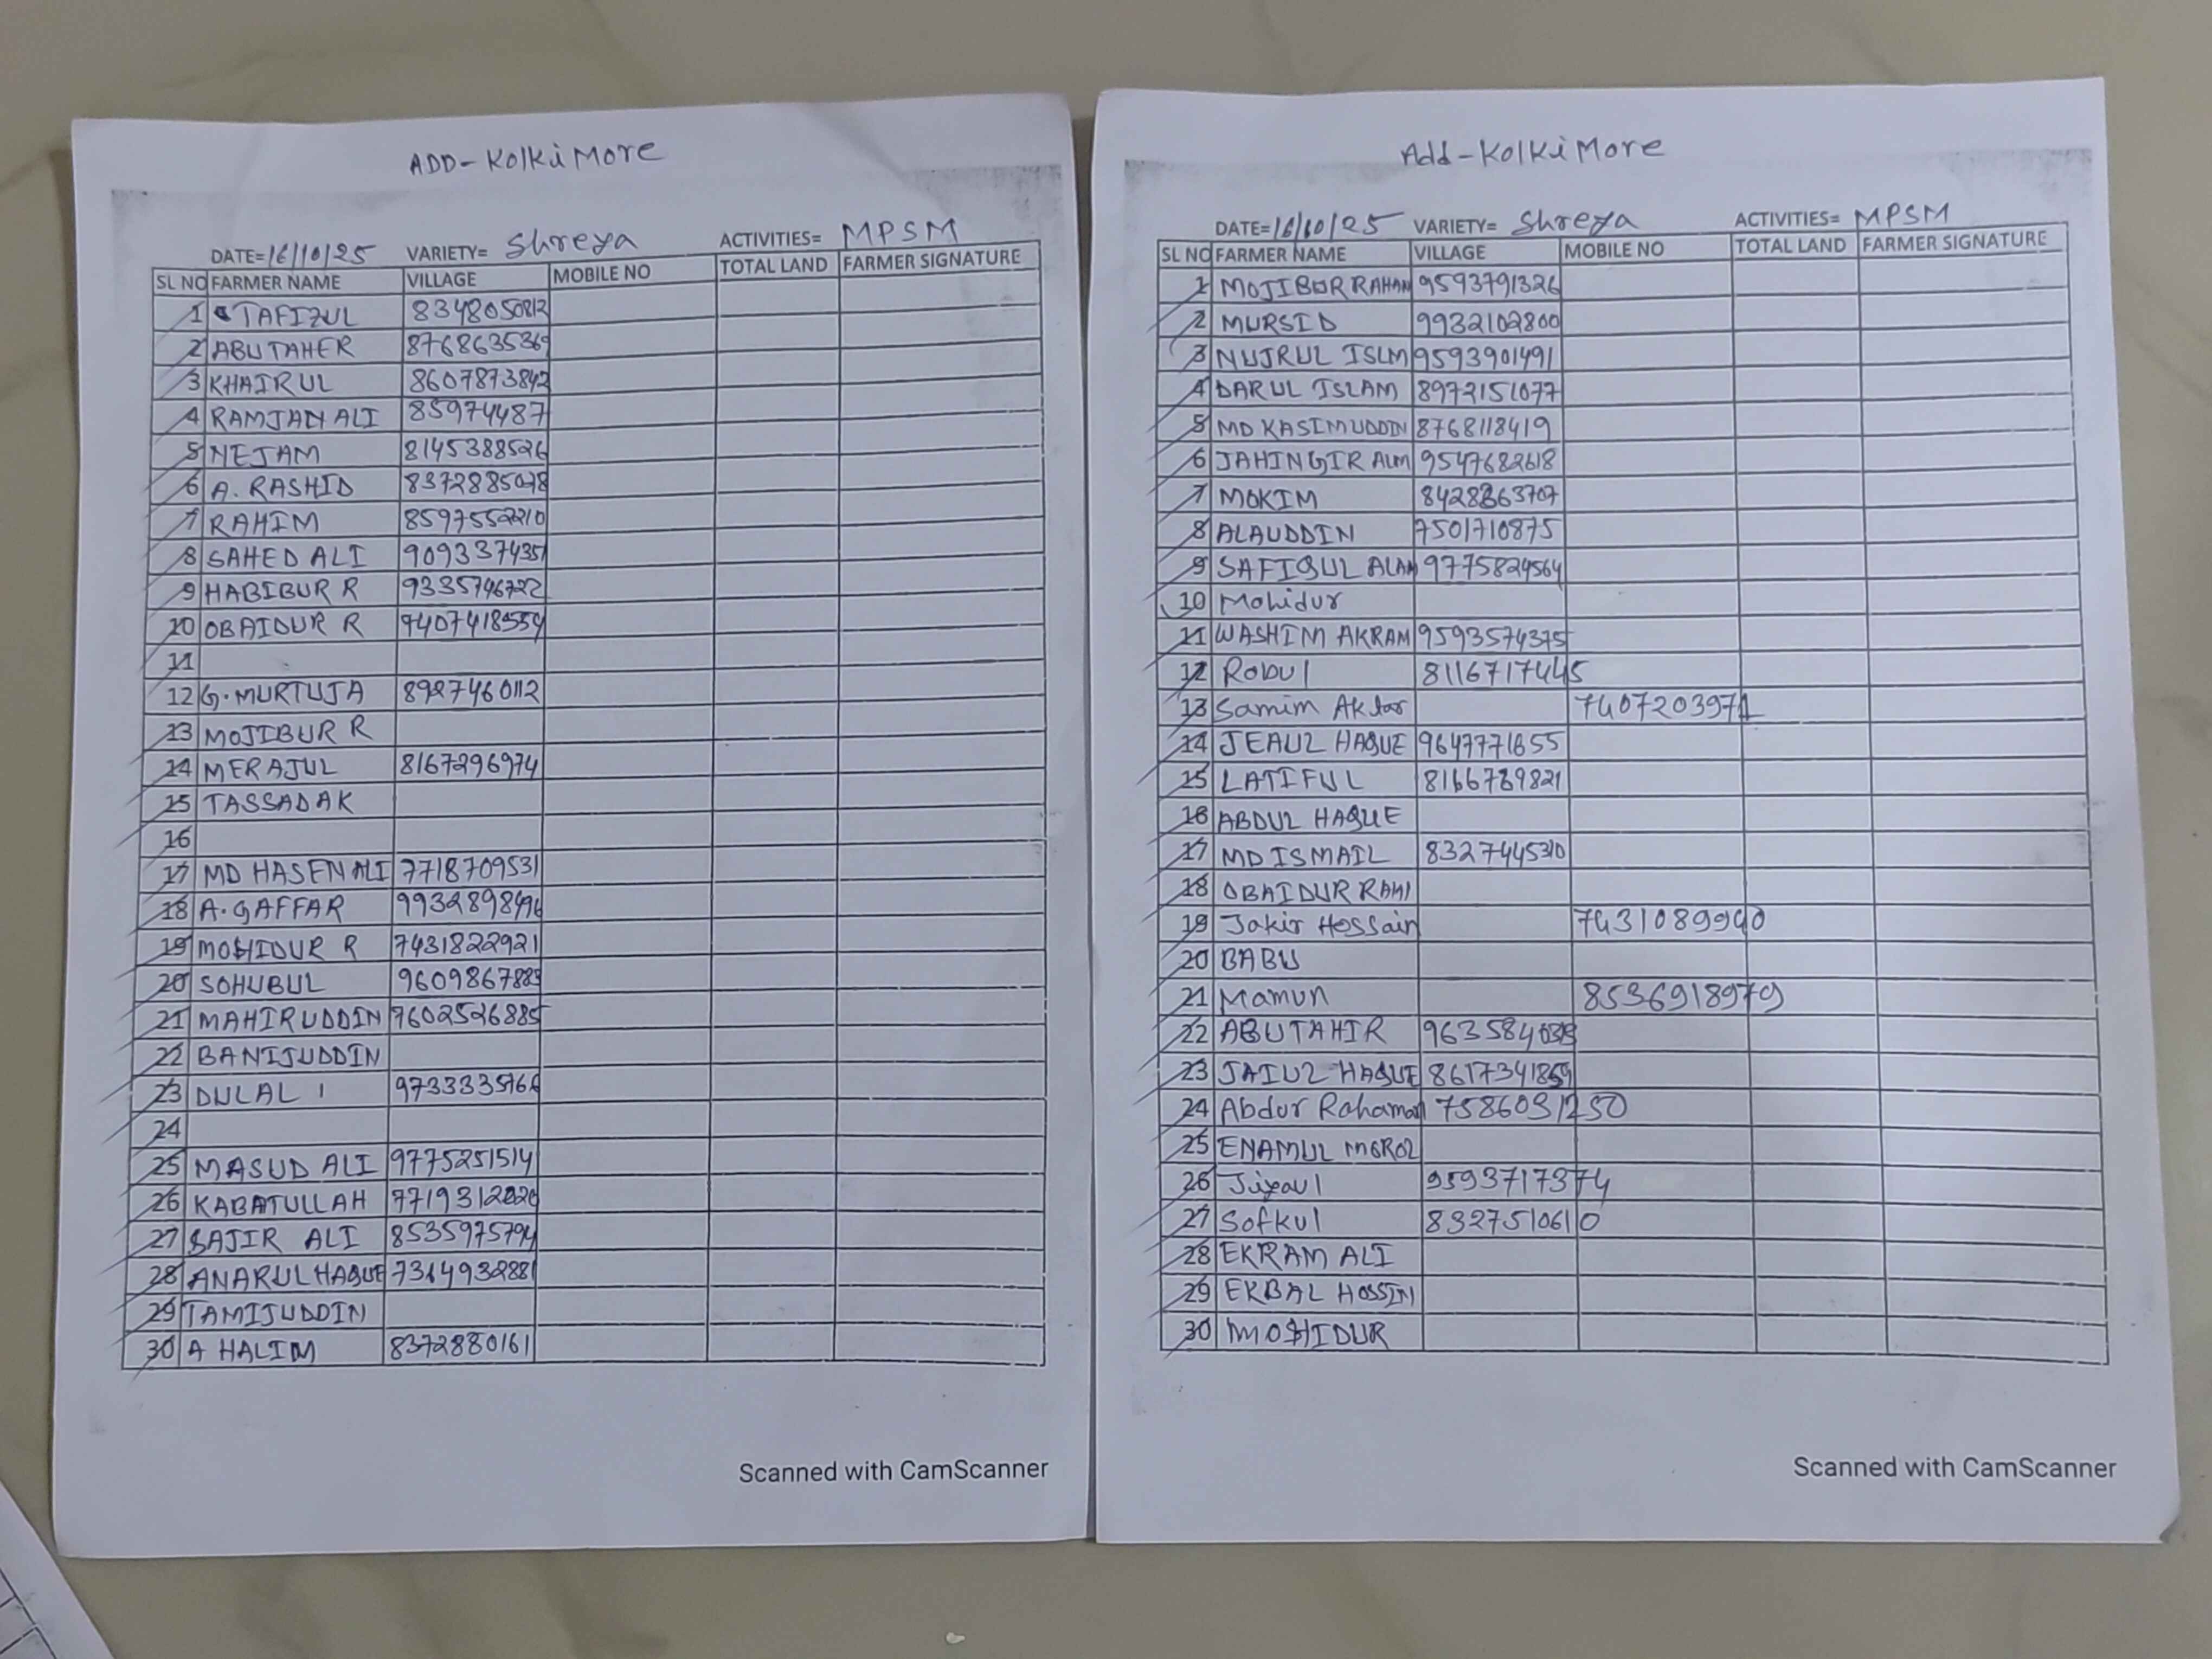 ADD-Kolki More
DATE=16/10/25 VARIETY= Shreya ACTIVITIES= MPSM
SL NO FARMER NAME VILLAGE MOBILE NO TOTAL LAND FARMER SIGNATURE
1 TAFIZUL 8348050812
2 ABUTAHER 8768635369
3 KHAIRUL 8607873842
4 RAMJAN ALI 85974487
5 NEJAM 8145388526
6 A. RASHID 8372885078
7 RAHIM 8597552210
8 SAHED ALI 9093374351
9 HABIBUR R 9335746722
10 OBAIDUR R 9407418559
11
12 G. MURTUJA 8927460112
13 MOJIBUR R
14 MERAJUL 8167296974
15 TASSADAK
16
17 MD HASEN ALI 7718709531
18 A. GAFFAR 9932898496
19 MOHIDUR R 7431822921
20 SOHUBUL 9609867883
21 MAHIRUDDIN 7602526885
22 BANIJUDDIN
23 DULAL 9733335766
24
25 MASUD ALI 9775251514
26 KABATULLAH 7719312020
27 SAJIR ALI 8535975794
28 ANARUL HAQUE 7364932881
29 TAMIJUDDIN
30 A HALIM 8372880161
Scanned with CamScanner
Add-Kolki More
DATE=16/10/25 VARIETY= Shreya ACTIVITIES= MPSM
SL NO FARMER NAME VILLAGE MOBILE NO TOTAL LAND FARMER SIGNATURE
1 MOJIBUR RAHAN 9593791326
2 MURSID 9932102800
3 NUJRUL ISLM 9593901491
4 DARUL ISLAM 8972151077
5 MD KASIMUDDIN 8768118419
6 JAHINGIR ALM 9547682618
7 MOKIM 8428363707
8 ALAUDDIN 7501710875
9 SAFIQUL ALAM 9775824564
10 Mohidur
11 WASHIM AKRAM 9593574375
12 Robul 8116717445
13 Samim Aktar 7407203971
14 JEAUL HAQUE 9647771655
15 LATIFUL 8166789821
16 ABDUL HAQUE
17 MD ISMAIL 8327445310
18 OBAIDUR RAHI
19 Jakir Hossain 7431089940
20 BABU
21 Mamun 8536918979
22 ABUTAHIR
23 JAIUL HAQUE 8617341859
24 Abdur Rahaman 7586091250
25 ENAMUL
26 Jiyaul 9593717374
27 Sofkul 8327510610
28 EKRAM ALI
29 EKBAL HOSSIN
30 MOHIDUR
Scanned with CamScanner